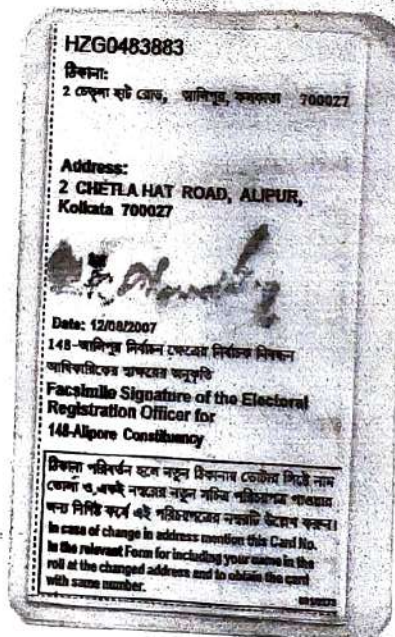 HZG0483883
ঠিকানা:
2 চেতলা হাট রোড, আলিপুর, কলকাতা 700027
Address:
2 CHETLA HAT ROAD, ALIPUR,
Kolkata 700027
Date: 12/08/2007
148-আলিপুর নির্বাচন ক্ষেত্রের নির্বাচক নিবন্ধন
আধিকারিকের স্বাক্ষরের অনুকৃতি
Facsimile Signature of the Electoral
Registration Officer for
148-Alipore Constituency
ঠিকানা পরিবর্তন হলে নতুন ঠিকানার ভোটার লিস্টে নাম
তোলা ও একই নম্বরের নতুন সচিত্র পরিচয়পত্র পাওয়ার
জন্য নির্দিষ্ট ফর্মে এই পরিচয়পত্রের নম্বরটি উল্লেখ করুন।
In case of change in address mention this Card No.
in the relevant Form for including your name in the
roll at the changed address and to obtain the card
with same number.